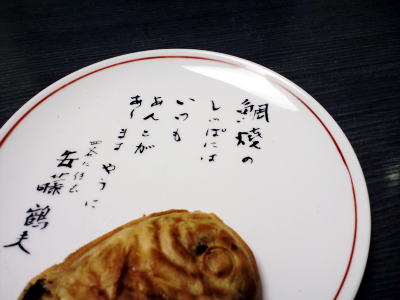 鯛焼の
しっぽには
いつも
あんこが
ありますように
安藤鶴夫